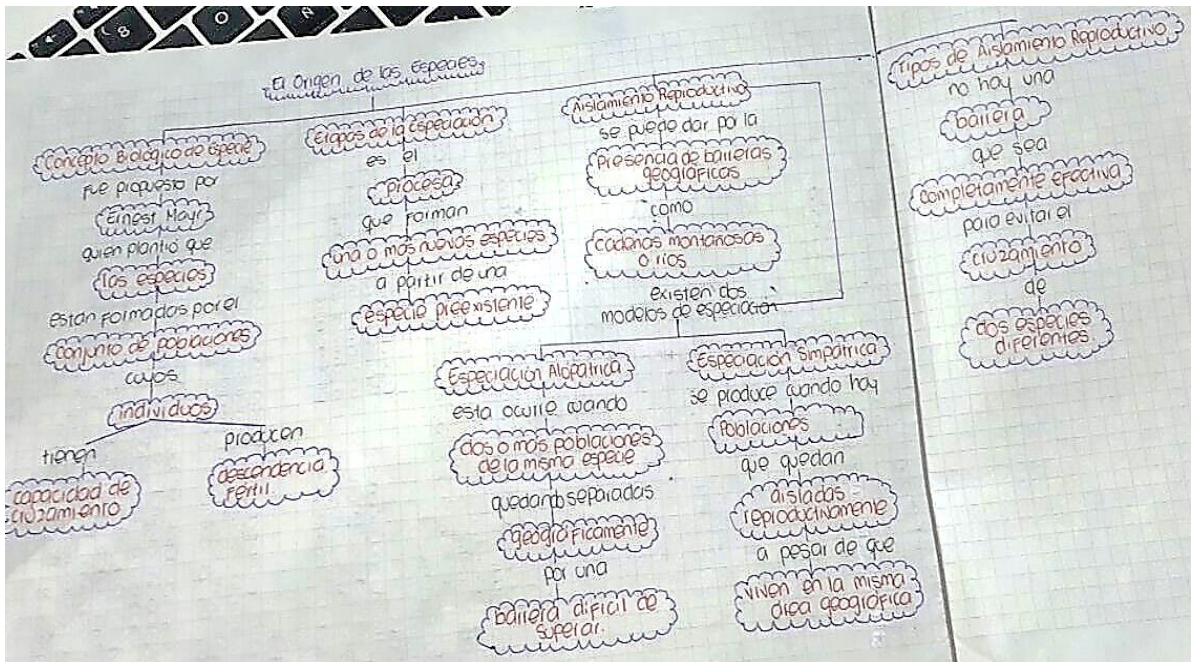 El Origen de las Especies
Concepto Biológico de Especie
fue propuesto por
Ernest Mayr
quien plantió que
las especies
están formadas por el
conjunto de poblaciones
cuyos
individuos
tienen
capacidad de
cruzamiento
producen
descendencia
fértil.
Etapas de la Especiación
es el
proceso
que forman
una o más nuevas especies
a partir de una
especie preexistente
Aislamiento Reproductivo
se puede dar por la
Presencia de barreras
geográficas
como
cadenas montañosas
o ríos
existen dos
modelos de especiación
Especiación Alopátrica
esta ocurre cuando
dos o más poblaciones
de la misma especie
quedan separadas
geográficamente
por una
barrera dificil de
superar.
Especiación Simpátrica
se produce cuando hay
Poblaciones
que quedan
aisladas
reproductivamente
a pesar de que
viven en la misma
área geográfica
Tipos de Aislamiento Reproductivo
no hay una
barrera
que sea
completamente efectiva
para evitar el
cruzamiento
de
dos especies
diferentes.
8
O
Ñ